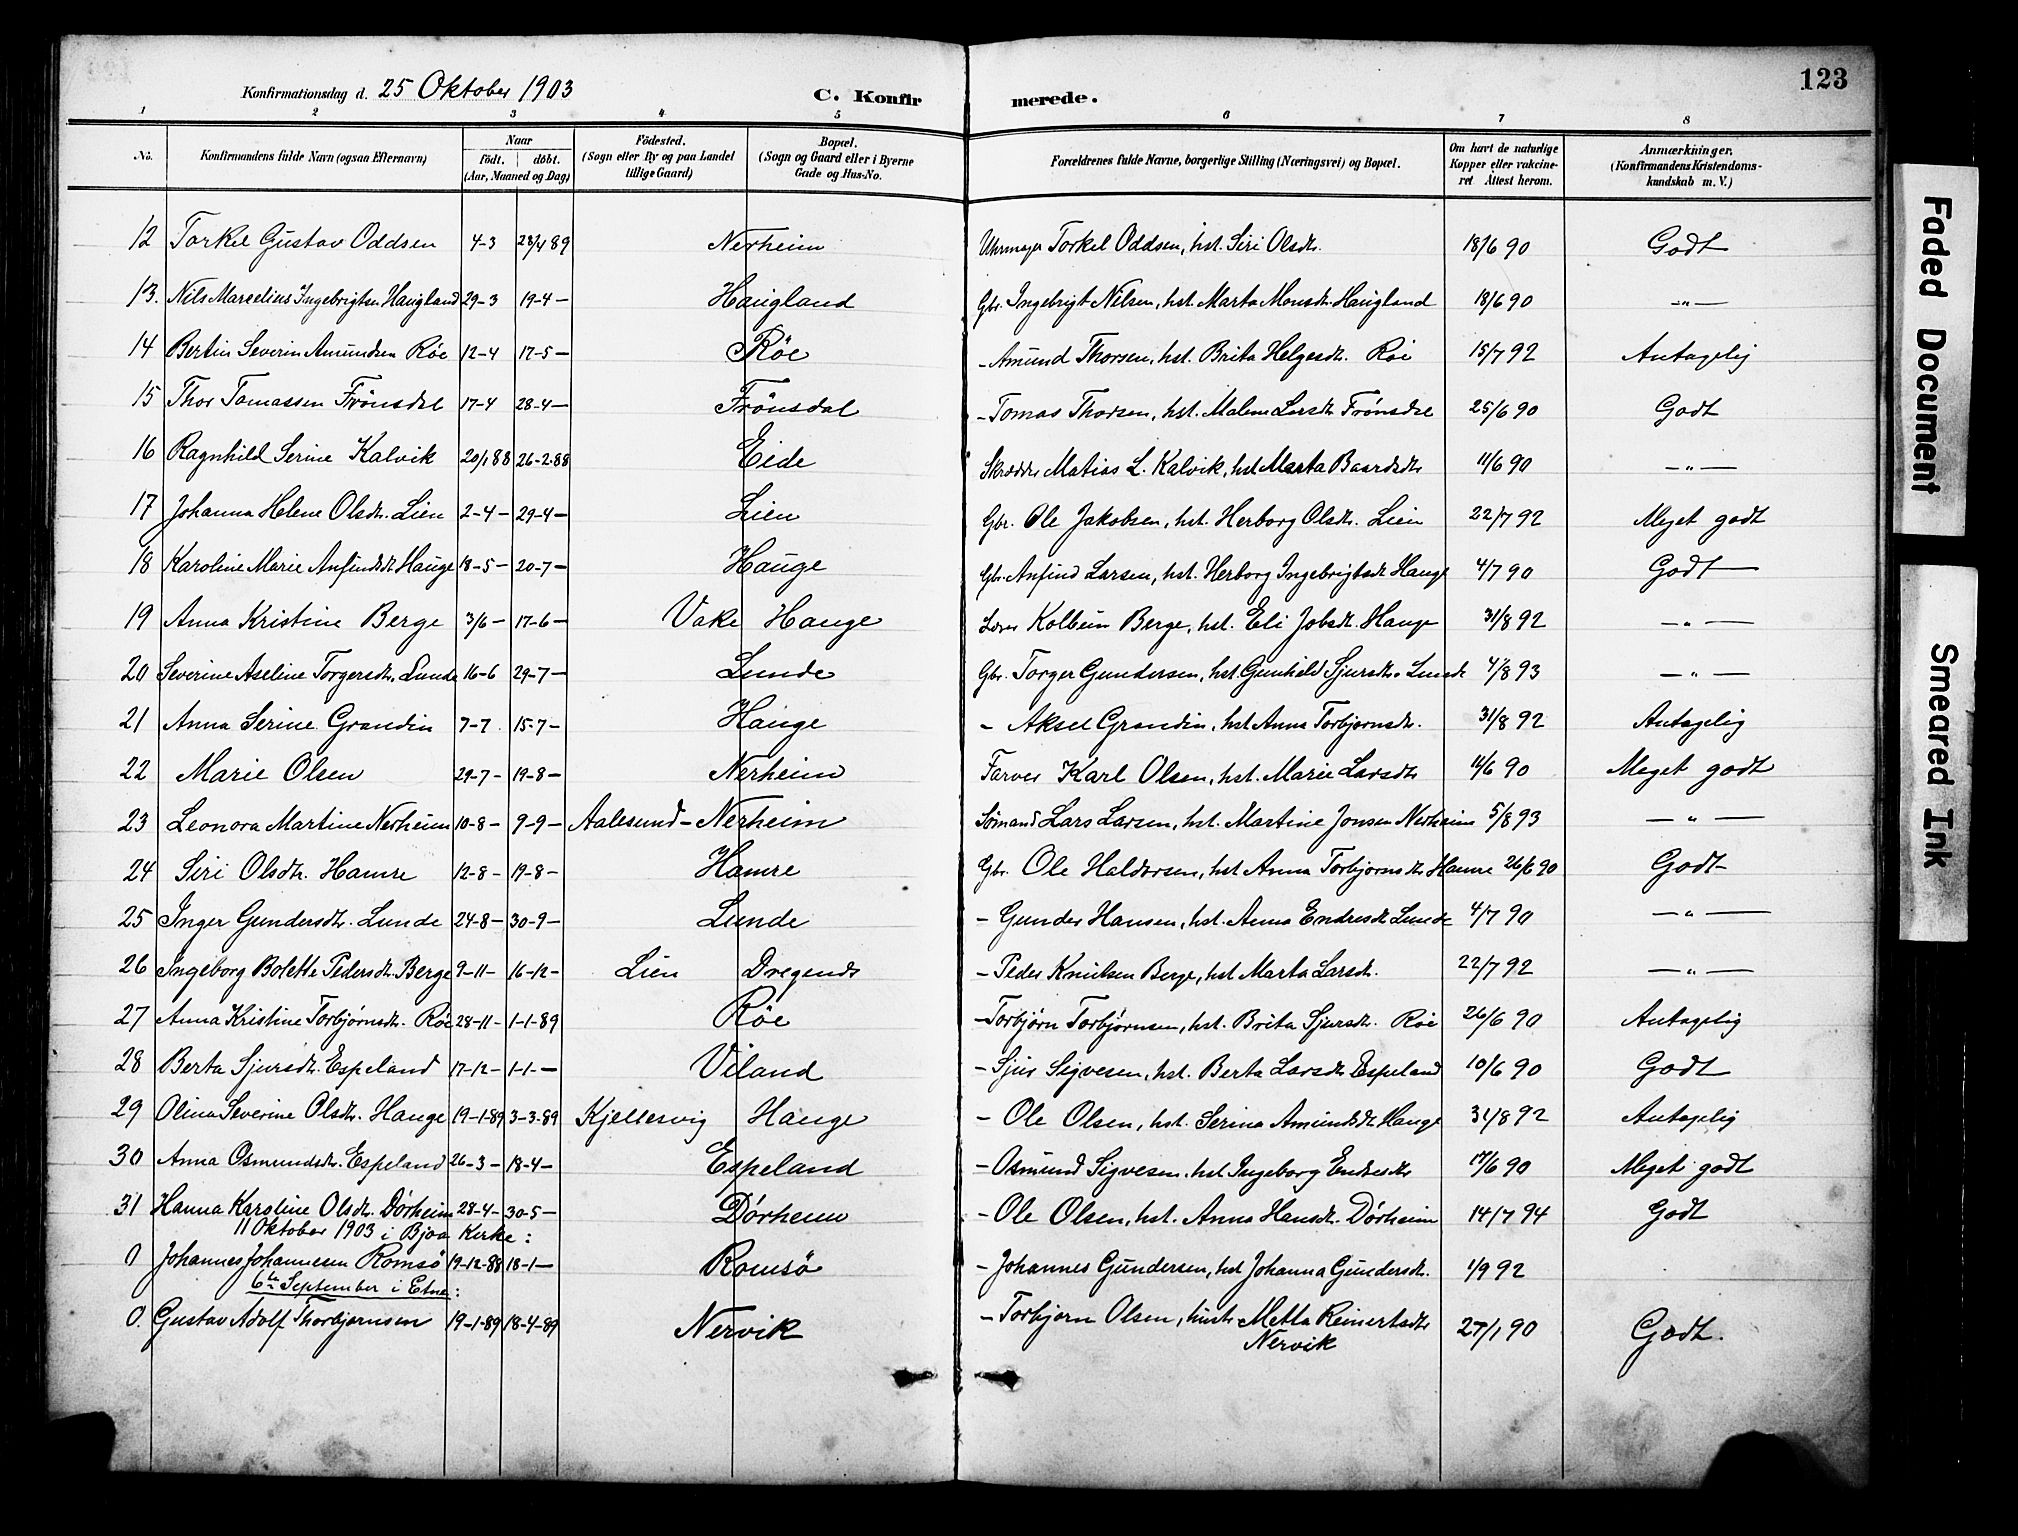 123
Konfirmationsdag d. 25 Oktober 1903 C. Konfir merede.
1 2 3 4 5 6 7 8
No. Konfirmandens fulde Navn (ogsaa Efternavn) Naar födt. döbt. (Aar, Maaned og Dag) Födested. (Sogn eller By og paa Landet tillige Gaard) Bopæl. (Sogn og Gaard eller i Byerne Gade og Hus-No. Forældrenes fulde Navne, borgerlige Stilling (Næringsvei) og Bopæl. Om havt de naturlige Kopper eller vakcineret Attest herom. Anmærkninger, (Konfirmandens Kristendomskundskab m. V.)
12 Torkel Gustav Oddsen 4-3 28/4 89 Nerheim Uhrmager Torkel Oddsen, hst. Siri Olsdt. 18/6 90 Godt
13. Nils Marselius Ingebrigtsen Haugland 29-3 19-4 — Haugland Gbr. Ingebrigt Nilsen, hst. Marta Monsdt. Haugland 18/6 90 —"—
14 Bertin Severin Amundsen Röe 12-4 17-5 — Röe - Amund Thorsen, hst. Brita Helgesdt. Röe 15/7 92 Antagelig
15 Thor Tomassen Frönsdal 17-4 28-4 — Frönsdal - Tomas Thorsen, hst. Malene Larsdt. Frönsdal 25/6 90 Godt
16 Ragnhild Serine Kalvik 20/1 88 26-2-88 Eide Skrædder Matias L. Kalvik, hst Marta Baardsdtr 11/6 90 —"—
17 Johanna Helene Olsdt. Lien 2-4 — 29-4 — Lien Gbr. Ole Jakobsen, hst. Herborg Olsdt. Lien 22/7 92 Meget godt
18 Karoline Marie Anfindsdt. Hauge 18-5 — 20-7 — Hauge Gbr. Anfind Larsen, hst. Herborg Ingebrigtsdt. Hauge 4/7 90 Godt
19 Anna Kristine Berge 3/6 — 17-6 — Vake Hauge Lærer Kolbein Berge, hst. Eli Jobsdt. Hauge 31/8 92 —"—
20 Severine Aseline Torgersdtr. Lunde 16-6 29-7 — Lunde Gbr. Torger Gundersen, hst. Gunhild Sjursdtr. Lunde 4/8 93 —"—
21 Anna Serine Grandin 7-7 15-7 — Hauge - Aksel Grandin, hst Anna Torbjørnsdt. 31/8 92 Antagelig
22 Marie Olsen 29-7 — 19-8 — Nerheim Farver Karl Olsen, hst. Marie Larsdtr 11/6 90 Meget godt
23 Leonora Martine Nerheim 10-8 — 9-9 — Aalesund - Nerheim Sømand Lars Larsen, hst. Martine Jonsen Nerheim 5/8 93 —"—
24 Siri Olsdtr. Hamre 12-8 — 19-8 — Hamre Gbr. Ole Haldorsen, hst Anna Torbjørnsdtr Hamre 26/6 90 Godt
25 Inger Gundersdtr. Lunde 24-8 — 30-9 — Lunde - Gunder Hansen, hst. Anna Endresdt. Lunde 4/7 90 —"—
26 Ingeborg Bolette Pedersdt. Berge 9-11 — 16-12 — Lien - Peder Knutsen Berge, hst Marta Larsdt. 22/7 92 —"—
27 Anna Kristine Torbjørnsdtr. Röe 28-11 — 1-1-89 Röe - Torbjörn Torbjörnsen, hst. Brita Sjursdtr. Röe 26/6 90 Antagelig
28 Berta Sjursdtr. Espeland 17-12 — 1-1 — Viland - Sjur Sigvesen, hst. Berta Larsdtr Espeland 10/6 90 Godt
29 Olina Severine Olsdtr. Hauge 19-1-89 3-3-89 Kjellesvig Hauge - Ole Olsen, hst. Serina Amundsdt. Hauge 31/8 92 Antagelig
30 Anna Osmundsdtr. Espeland 26-3 — 18-4 — Espeland - Osmund Sigvesen, hst Ingeborg Endresdtr 17/6 90 Meget godt
31 Hanna Karoline Olsdtr. Dörheim 28-4 — 30-5 — Dörheim - Ole Olsen, hst. Anna Hansdt. Dörheim 14/7 94 Godt
11 Oktober 1903 i Bjoa Kirke:
0 Johannes Johannesen Romsö 19-12-88 18-1 — Romsö - Johannes Gundersen, hst Johanna Gundersdt. 1/9 92
6te September i Etne:
0. Gustav Adolf Thorbjørnsen 19-1-89 18-4-89 Nervik - Torbjørn Olsen, hustr Metta Reinertsdtr 27/1 90 Godt.
Nervik
Faded Document
Smeared Ink